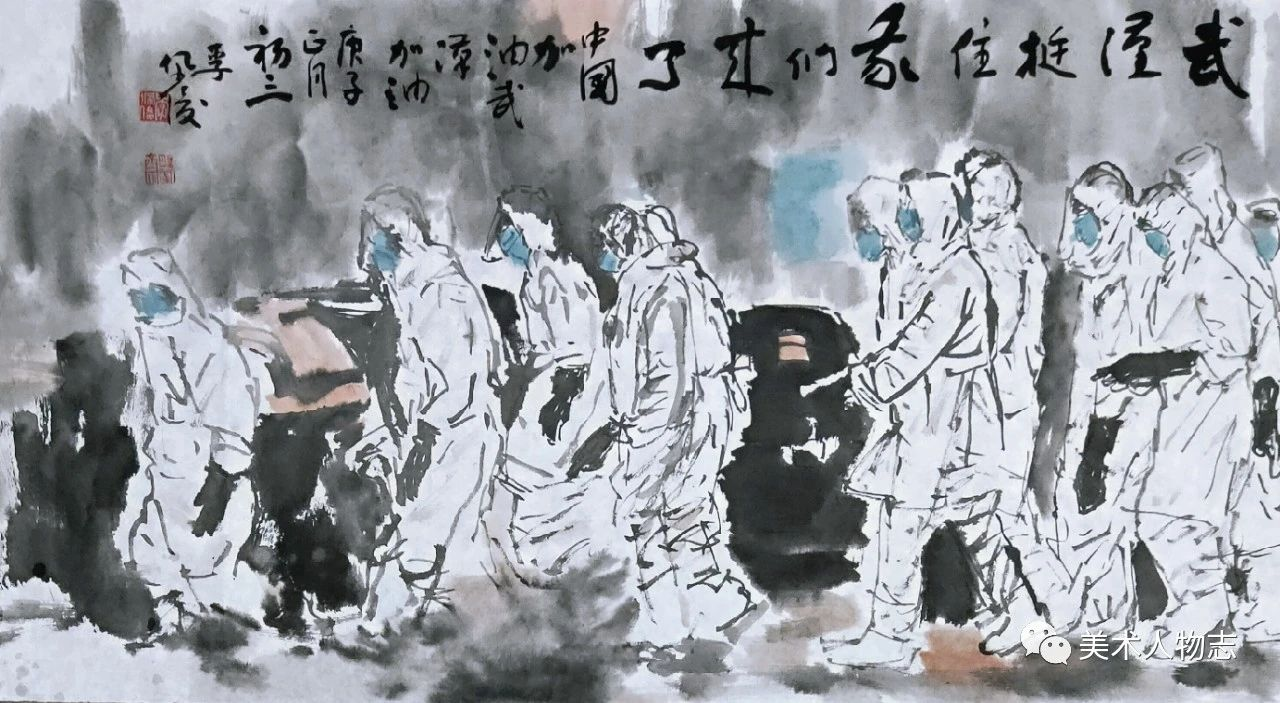 武漢挺住我们来了
中國
加
油武
漢
加油
庚子
正月
初三
美术人物志